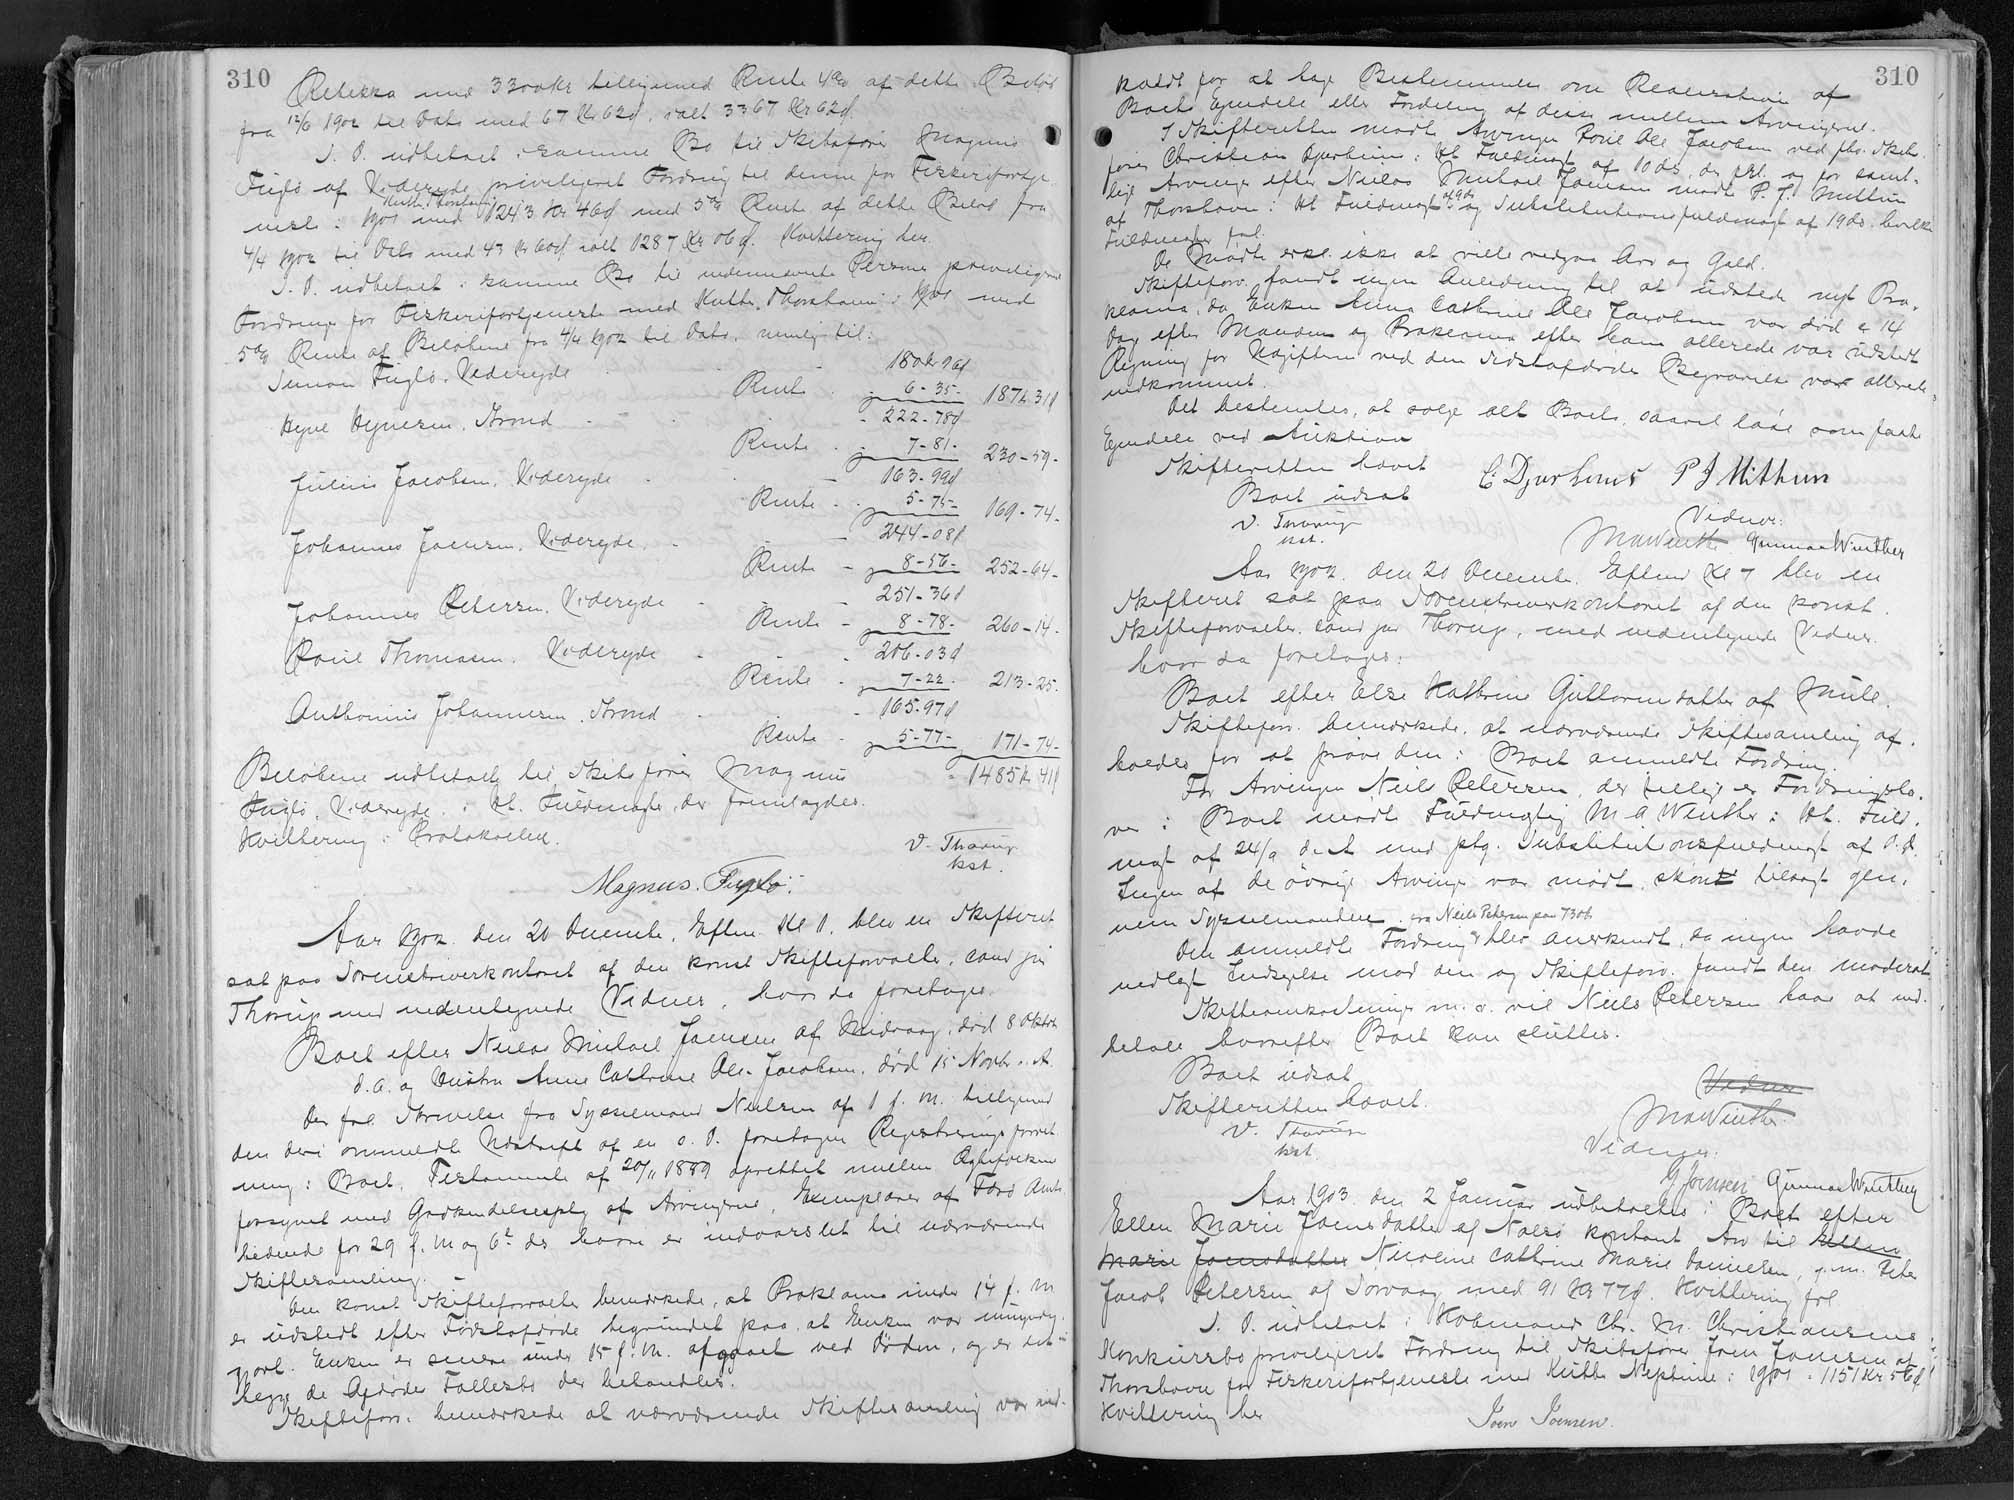 310
Rebekka med 3300 Kr tilligemed Rente 4% af dette Beløb
fra 12/6 1902 til Dato med 67 Kr 62 Ø, ialt 3367 Kr 62 Ø.
S. D. udbetalt i samme Bo til Skibsfører Magnus
Fuglø af Videreide priviligeret Fordring til denne for Fiskerifortje-
neste i 1901 med Kutt. Thorshavn 1243 Kr 46 Ø med 5% Rente af dette Beløb fra
4/4 1902 til Dato med 43 Kr 60 Ø ialt 1287 Kr 06 Ø. Kvittering her.
S. D. udbetalt i samme Bo til nedennævnte Personer priviligerede
Fordringer for Fiskerifortjeneste med Kutter Thorshavn i 1901 med
5% Rente af Beløbene fra 4/4 1902 til Dato, nemlig til:
Simon Fuglø, Videreide - - 180 Kr 96 Ø
Rente - 6 - 35 - 187 Kr 31 Ø
Hejne Hejnesen, Strond - - 222 - 78 Ø
Rente - 7 - 81 - 230 - 59 -
Julius Jacobsen, Videreide - - 163 - 99 Ø
Rente - 5 - 75 - 169 - 74 -
Johannes Joensen, Videreide - - 244 - 08 Ø
Rente - 8 - 56 - 252 - 64 -
Johannes Petersen, Videreide - - 251 - 36 Ø
Rente - 8 - 78 - 260 - 14 -
Poul Thomasen, Videreide - - 206 - 03 Ø
Rente - 7 - 22 - 213 - 25 -
Anthonius Johannesen, Strond - - 165 - 97 Ø
Rente - 5 - 77 - 171 - 74 -
Beløbene udbetalt til Skibsfører Magnus - 1485 Kr 41 Ø
Fuglø, Videreide, i Hl. Fuldmagt, der fremlagdes.
Kvittering i Protokollen.
V. Thorup
kst.
Magnus. Fuglø.
Aar 1902 den 20 Decembr. Efterm. Kl 1. blev en Skifteret
sat paa Sorenskriverkontoret af den konst Skifteforvalter, cand jur
Thorup med nedentegnede Vidner, hvor da foretoges
Boet efter Niclas Michael Joensen af Midvaag, død 8 Oktbr
d. A. og Hustru Anne Cathrine Ole Jacobsen, død 15 Novbr. d. A.
Der fol. Skrivelse fra Sysselmand Nielsen af 1 f. M. tilligemed
den deri ommeldte Udskrift af en s. D. foretagen Registreringsforret-
ning i Boet, Testamente af 20/11 1889 oprettet mellem Ægtefolkene
forsynet med Godkendelsesptg af Arvingerne, Exemplarer af Færø Amts-
tidende for 29 f. M og 6 d. der hvori er indvarslet til nærværende
Skiftesamling.
Den konst Skifteforvalter bemærkede, at Proklama under 14 f. M
er udstedt efter Førstafdøde begrundet paa at Enken var umyndig-
gjort. Enken er senere under 15 f. M. afgaaet ved Døden, og er det
begge de Afdødes Fællesbo der behandles.
Skifteforv. bemærkede at nærværende Skiftesamling var ind-
310
kaldt for at tage Bestemmelse om Realisation af
Boets Ejendele eller Fordeling af disse mellem Arvingerne.
I Skifteretten mødte Arvingen Poul Ole Jacobsen ved fhv. Skibs-
fører Christian Djurhuus i Hl Fuldmagt af 10 ds, der fol. og for samt-
lige Arvinger efter Niclas Michael Joensen mødte P. J. Mitthun
af Thorshavn i Hl Fuldmagt af 9 ds og Substitutionsfuldmagt af 19 ds. hvilke
Fuldmagter fol.
De Mødte erkl. ikke at ville vedgaa Arv og Gæld.
Skifteforv. fandt ingen Anledning til at udstede nyt Pro-
klama, da Enken Anna Cathrine Ole Jacobsen var død c 14
Dag efter Manden og Proklama efter ham allerede var udstedt
Regning for Udgifterne ved den sidstafdøde Begravelse var allerede
indkommet.
Det bestemtes, at sælge alt Boets, saavel løse som faste
Ejendele ved Auktion
Skifteretten hævet C. Djurhuus P J Mitthun
Boet udsat
V. Thorup
kst.
Vidner:
MAWinther Gunnar Winther
Aar 1902. den 20 Decembr. Efterm Kl 7 blev en
Skifteret sat paa Sorenskriverkontoret af den konst.
Skifteforvalter. cand jur Thorup, med nedentegnede Vidner.
hvor da foretoges:
Boet efter Else Kathrine Guttormsdatter af Mule.
Skifteforv. bemærkede, at nærværende Skiftesamling af-
holdes for at prøve den i Boet anmeldte Fordring.
For Arvingen Niels Petersen, der tillige er Fordringsha-
ver i Boet mødte Fuldmægtig M A Winther i Hl. Fuld-
magt af 24/9 d. A med ptg. Substitutionsfuldmagt af D. D.
Ingen af de øvrige Arvinger var mødt, skønt tilsagt gen-
nem Sysselmanden.
Den anmeldte Fordring fra Niels Petersen paa 730 Kr blev anerkendt, da ingen havde
nedlagt Indsigelse mod den og Skifteforv. fandt den moderat
Skifteomkostninger m. v. vil Niels Petersen have at ind-
betale hvorefter Boet kan sluttes.
Boet udsat
Skifteretten hævet.
V. Thorup
kst.
Vidner
MAWinther
Vidner:
G Joensen Gunnar Winther
Aar 1903 den 2 Januar udbetaltes i Boet efter
Ellen Marie Joensdatter af Nolsø kontant Arv til Ellen
Marie Joensdatter Nicoline Cathrine Marie Danielsen, g. m. Peter
Jacob Petersen af Sorvaag med 91 Kr 77 Ø. Kvittering fol.
S. D. udbetalt i Købmand Chr. M. Christiansens
Konkursbo priviligeret Fordring til Skibsfører Joen Joensen af
Thorshavn for Fiskerifortjeneste med Kutter Neptune i 1901 - 1151 Kr 56 Ø
Kvittering her
Joen Joensen.